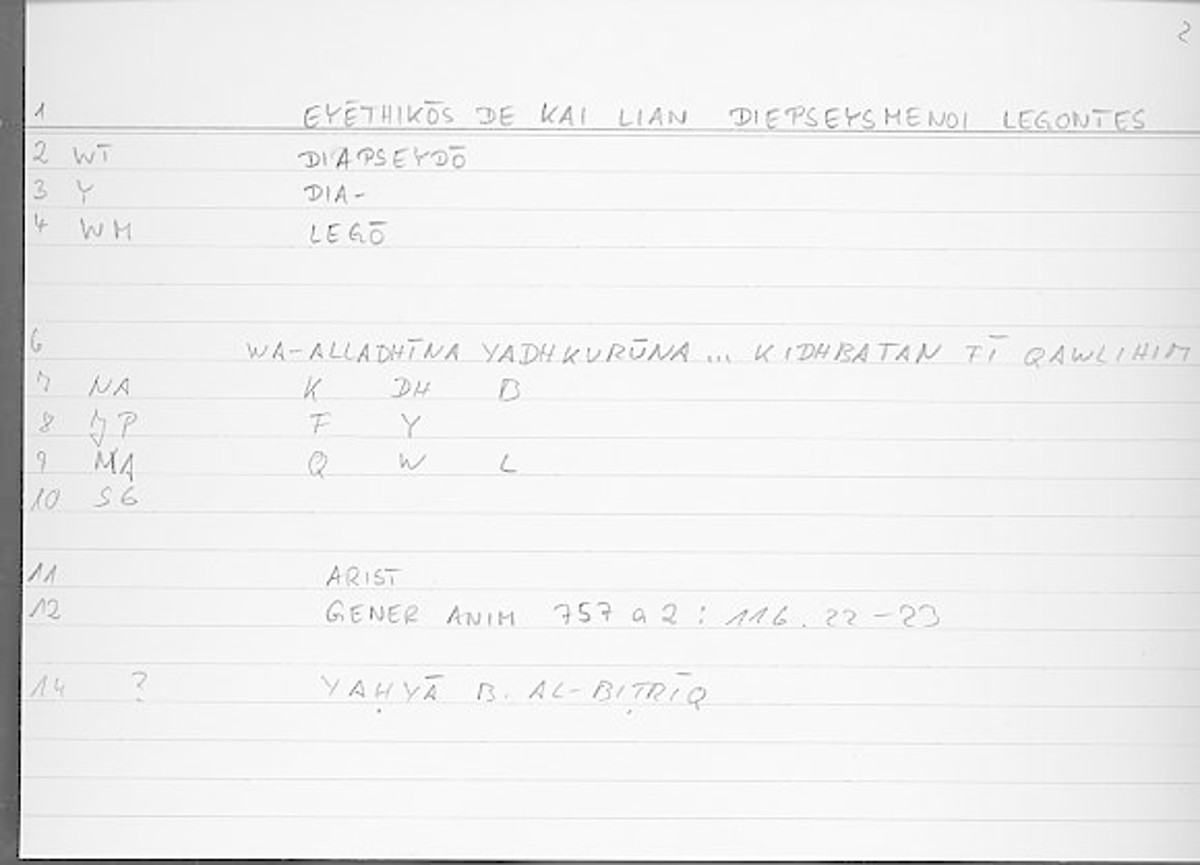 2
1 EYĒTHIKŌS DE KAI LIAN DIEPSEYSMENOI LEGONTES
2 WT DIAPSEYDŌ
3 Y DIA-
4 WM LEGŌ
6 WA-ALLADHĪNA YADHKURŪNA ... KIDHBATAN FĪ QAWLIHIM
7 NA K DH B
8 JP F Y
9 MA Q W L
10 SG
11 ARIST
12 GENER ANIM 757 a 2 : 116. 22-23
14 ? YAḤYĀ B. AL-BIṬRĪQ